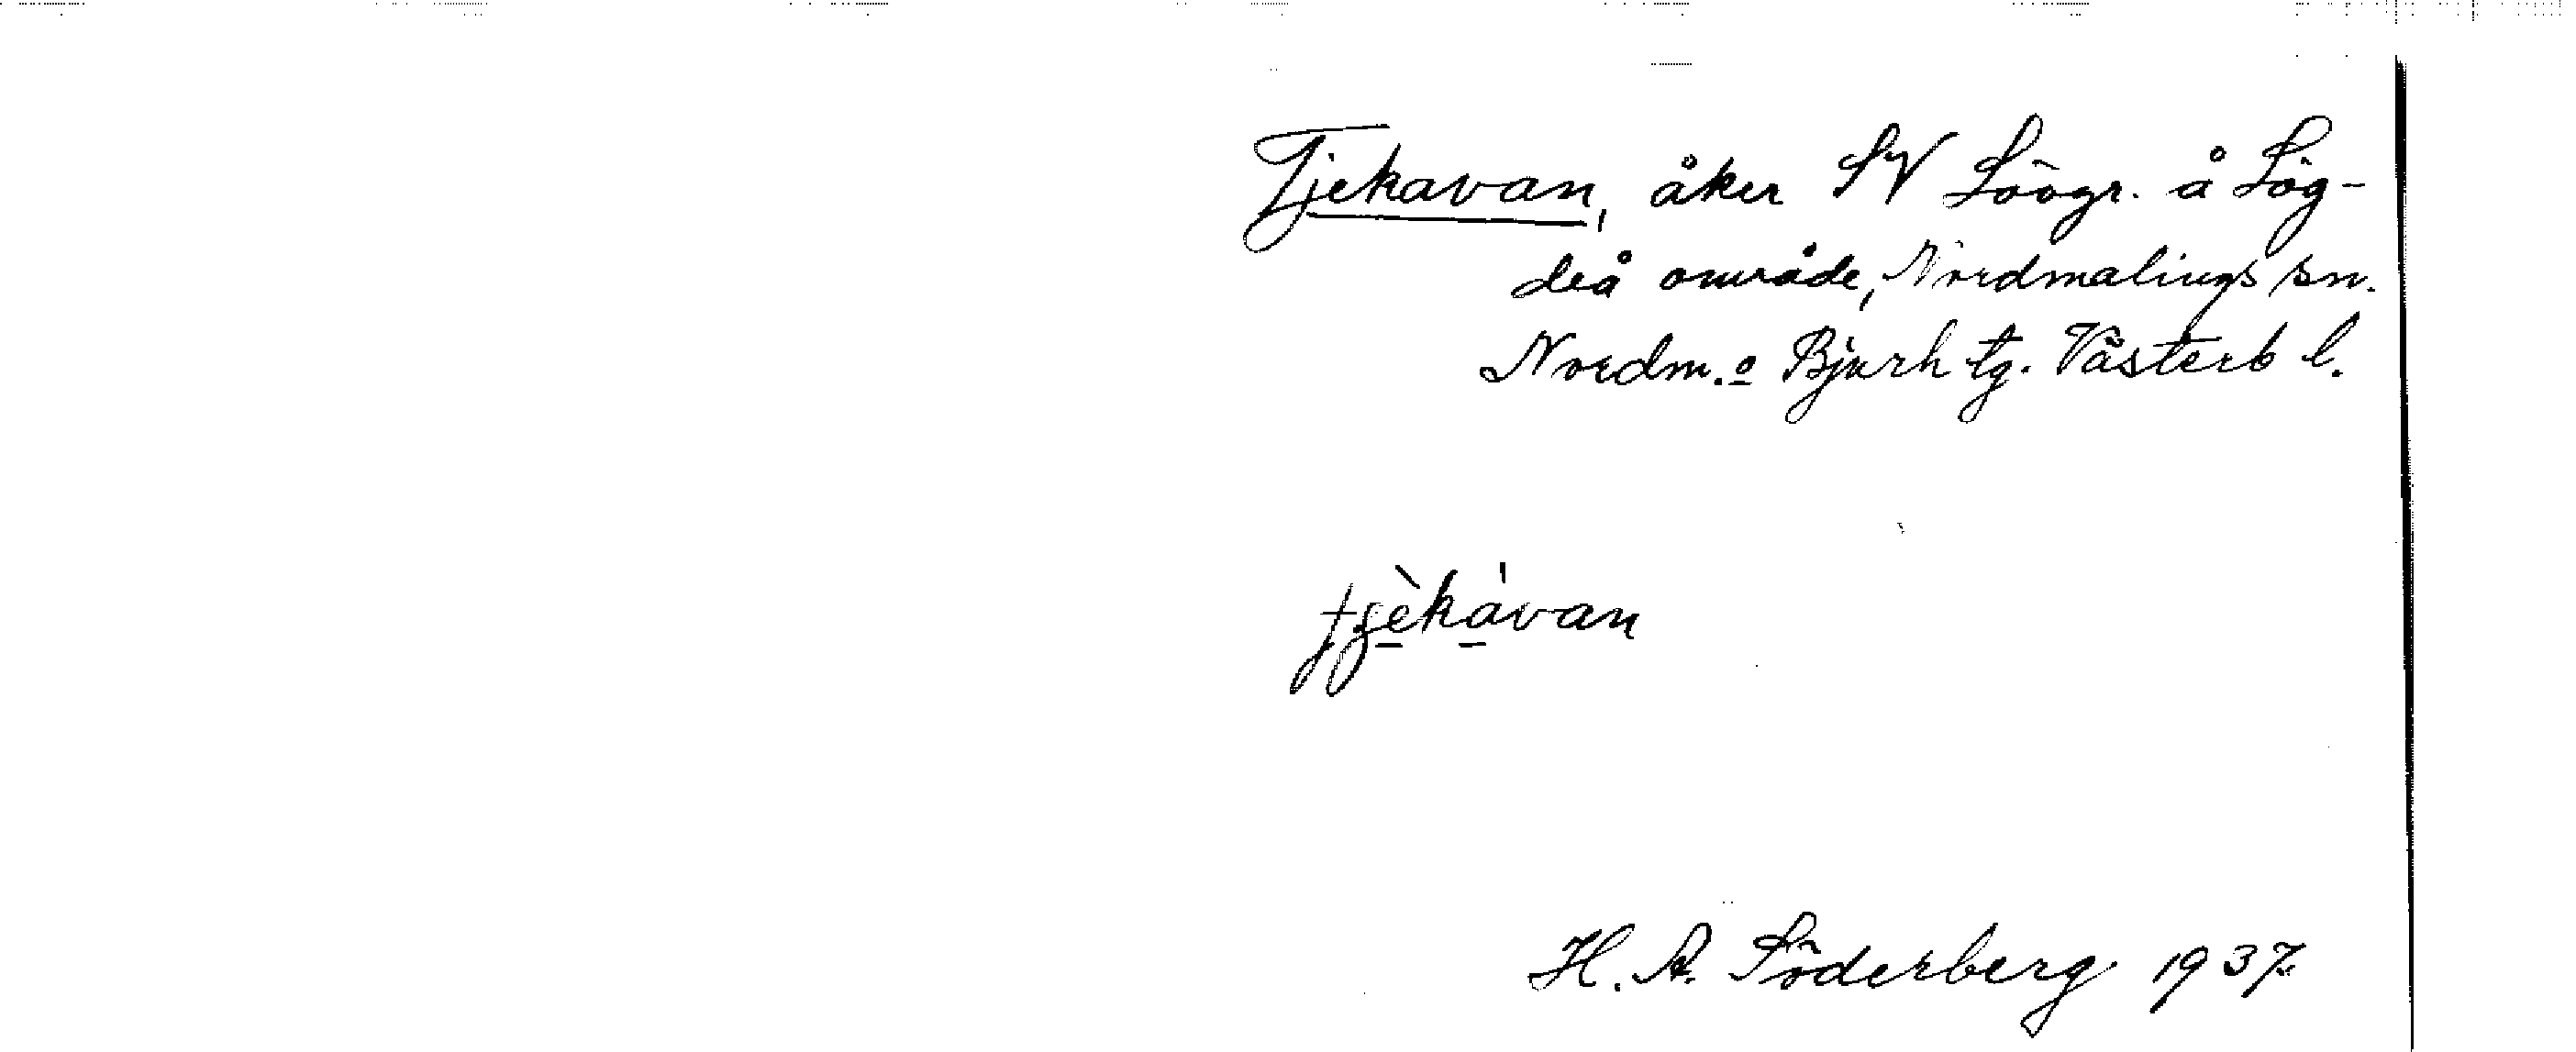 Tjekavan, åker SV Lövgr. å Lög-
deå område, Nordmalings sn.
Nordm. o Bjurh tg. Västerb l.
H. A. Söderberg 1937.